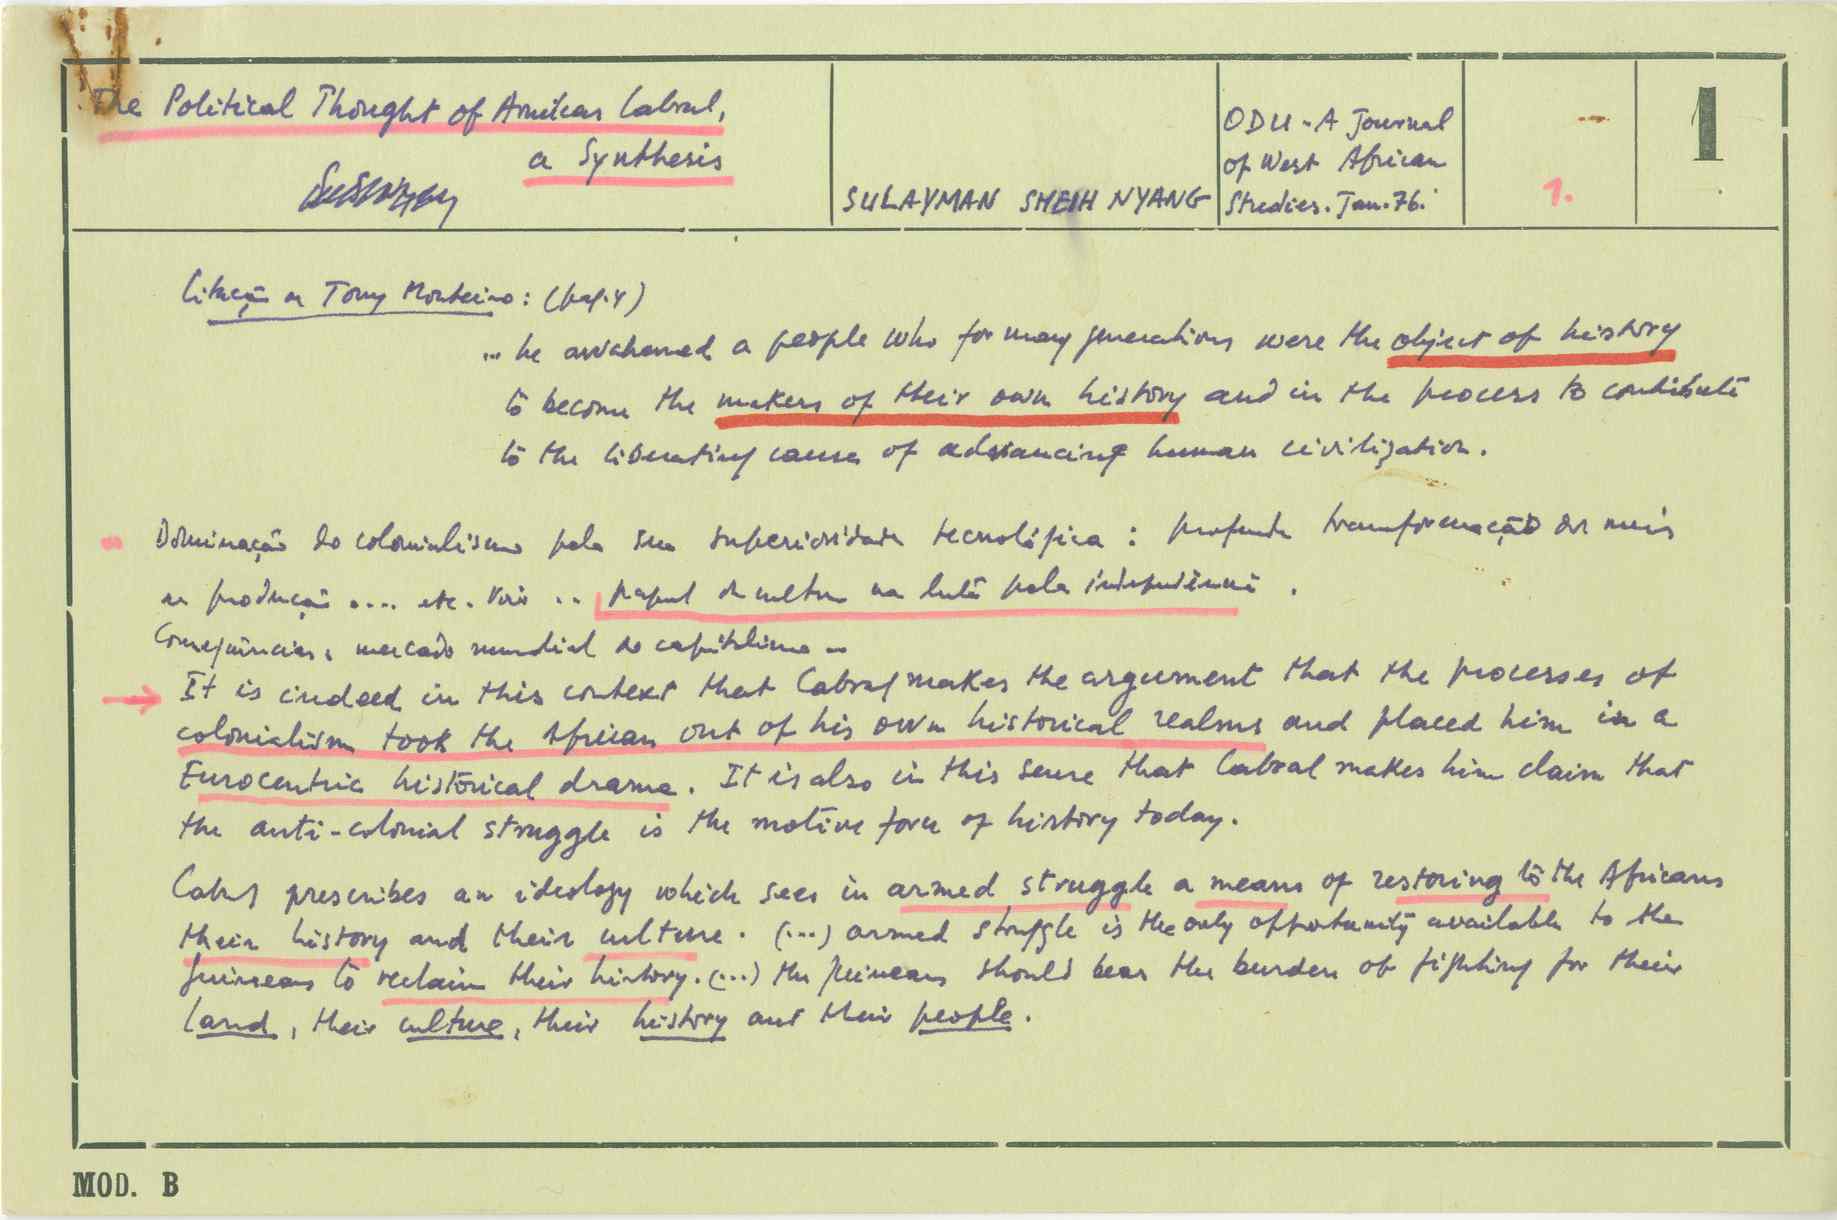 The Political Thought of Amilcar Cabral,
a Synthesis
SULAYMAN SHEIH NYANG
ODU - A Journal
of West African
Studies. Jan. 76.
1.
1
Citação a Tony Monteiro: (pag. 4)
... he awakened a people who for many generations were the object of history
to become the makers of their own history and in the process to contribute
to the liberating causes of advancing human civilization.
Dominação do colonialismo pela sua superioridade tecnológica: profunda transformação dos meios
de produção .... etc. Voir .. papel da cultura na luta pela independência.
Consequências: mercado mundial do capitalismo -
→ It is indeed in this context that Cabral makes the argument that the processes of
colonialism took the African out of his own historical realms and placed him in a
Eurocentric historical drama. It is also in this sense that Cabral makes him claim that
the anti-colonial struggle is the motive force of history today.
Cabral prescribes an ideology which sees in armed struggle a means of restoring to the Africans
their history and their culture. (...) armed struggle is the only opportunity available to the
Guineans to reclaim their history. (...) the Guineans should bear the burden of fighting for their
land, their culture, their history and their people.
MOD. B